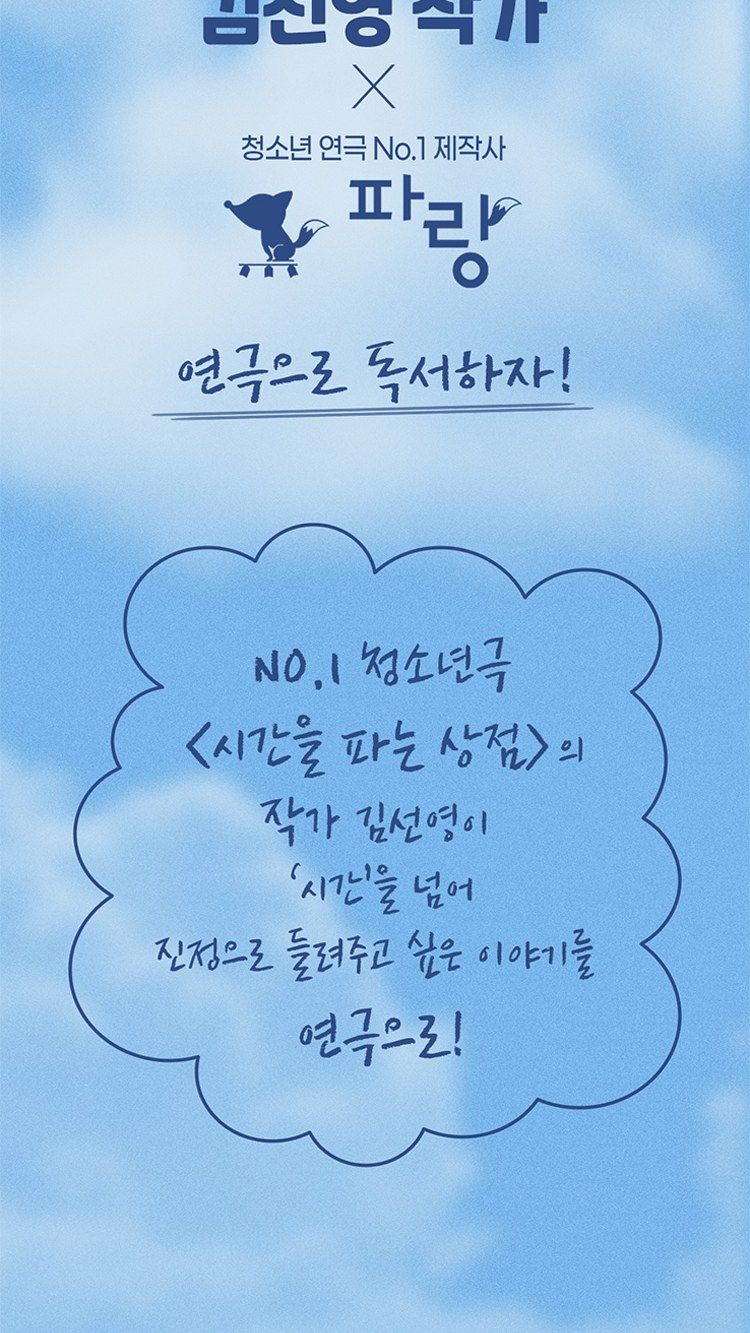 김선영 작가
×
청소년 연극 No.1 제작사
파랑
연극으로 독서하자!
NO.1 청소년극
<시간을 파는 상점>의
작가 김선영이
'시간'을 넘어
진정으로 들려주고 싶은 이야기를
연극으로!